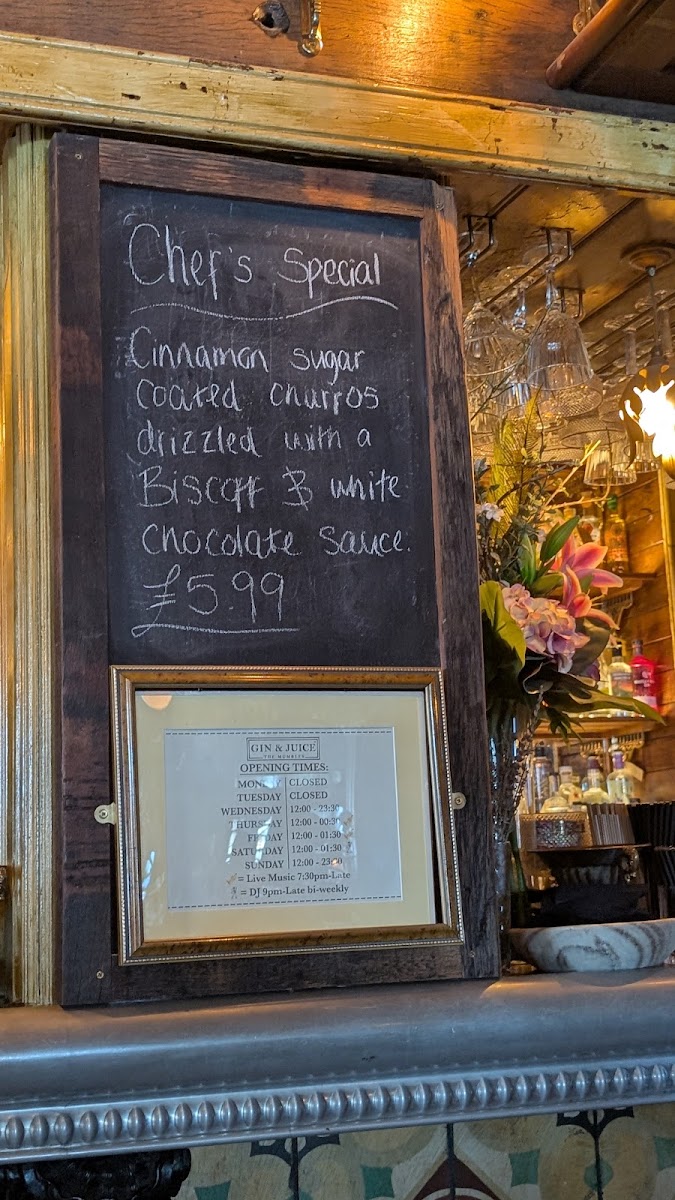 Chef's Special
Cinnamon sugar
coated churros
drizzled with a
Biscoff & white
chocolate sauce.
£5.99
GIN & JUICE
THE MUMBLES
OPENING TIMES:
MONDAY CLOSED
TUESDAY CLOSED
WEDNESDAY 12:00 - 23:30
THURSDAY 12:00 - 00:30
FRIDAY 12:00 - 01:30
SATURDAY 12:00 - 01:30
SUNDAY 12:00 - 23:00
= Live Music 7:30pm-Late
= DJ 9pm-Late bi-weekly